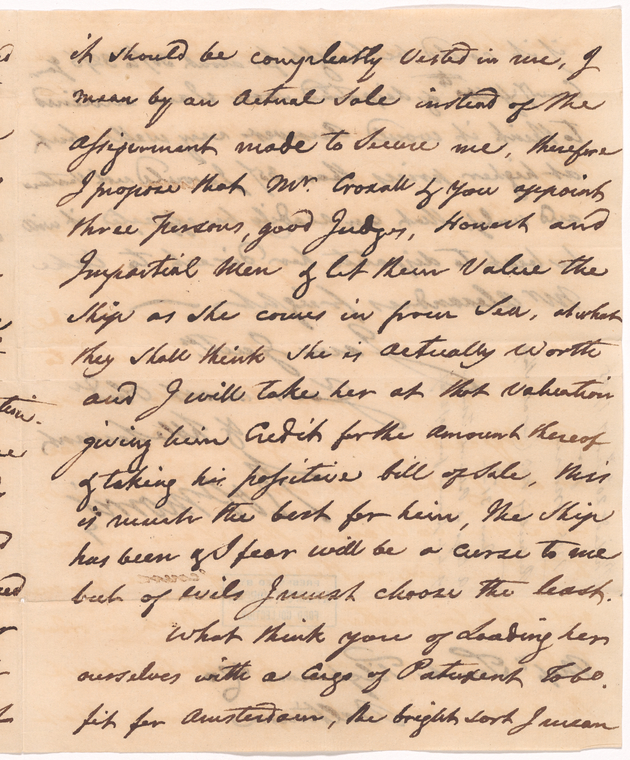 it should be compleatly Vested in me, I
mean by an Actual Sale instead of the
Assignment made to Secure me, therefore
I propose that Mr. Croxall & you appoint
three Persons, good Judges, Honest and
Impartial Men & let them Value the
Ship as she comes in from Sea, at what
they shall think she is actually worth
and I will take her at that Valuation
giving him Credit for the Amount thereof
& taking his possitive bill of Sale, this
is much the best for him, The Ship
has been & I fear will be a curse to me
but of evils I must choose the least.
What think you of Loading her
ourselves with a Cargo of Patuxent Tobo.
fit for Amsterdam, the bright sort I mean